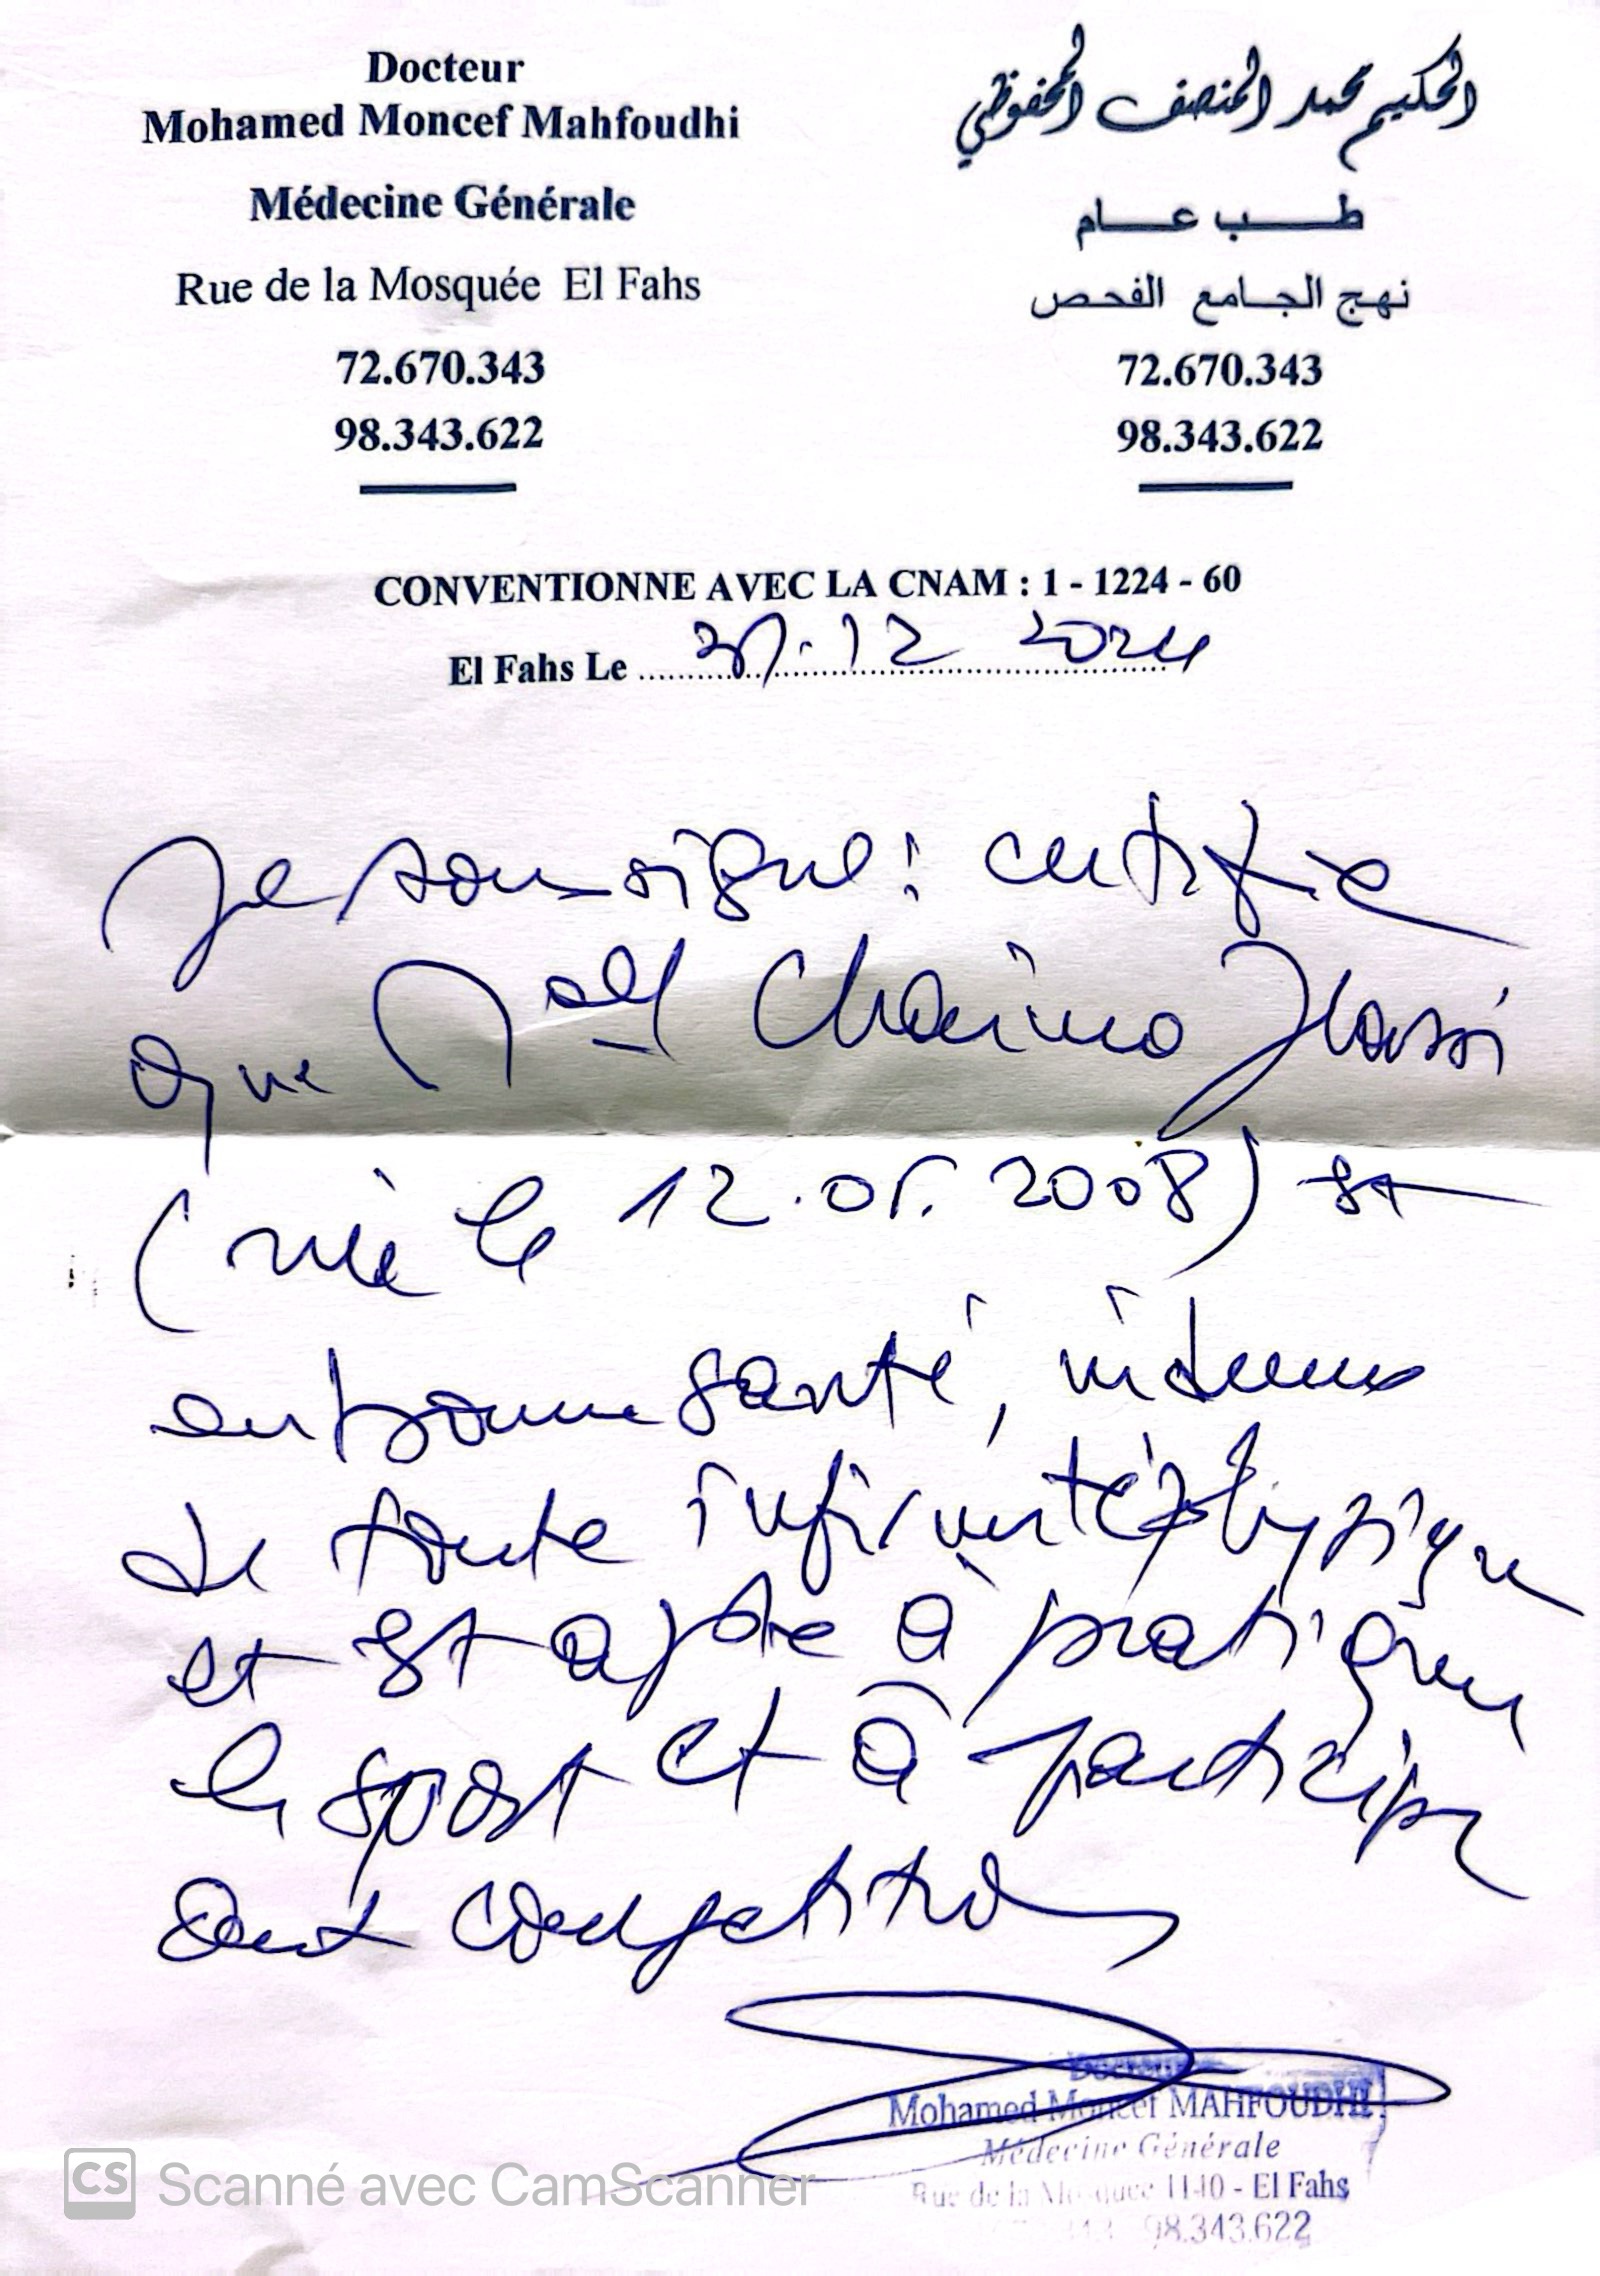 Docteur
Mohamed Moncef Mahfoudhi
Médecine Générale
Rue de la Mosquée El Fahs
72.670.343
98.343.622
الحكيم محمد المنصف المحفوظي
طب عام
نهج الجامع الفحص
72.670.343
98.343.622
CONVENTIONNE AVEC LA CNAM : 1 - 1224 - 60
El Fahs Le 12 2024
Je soussigné certifie
que Melle Chaima
(née le 12.05.2008) est
en bonne santé, indemne
de toute infirmité physique
et est apte à pratiquer
le sport et à participer
aux compétitions
Docteur
Mohamed Moncef MAHFOUDHI
Médecine Générale
Rue de la Mosquee 1140 - El Fahs
98.343.622
CS Scanné avec CamScanner